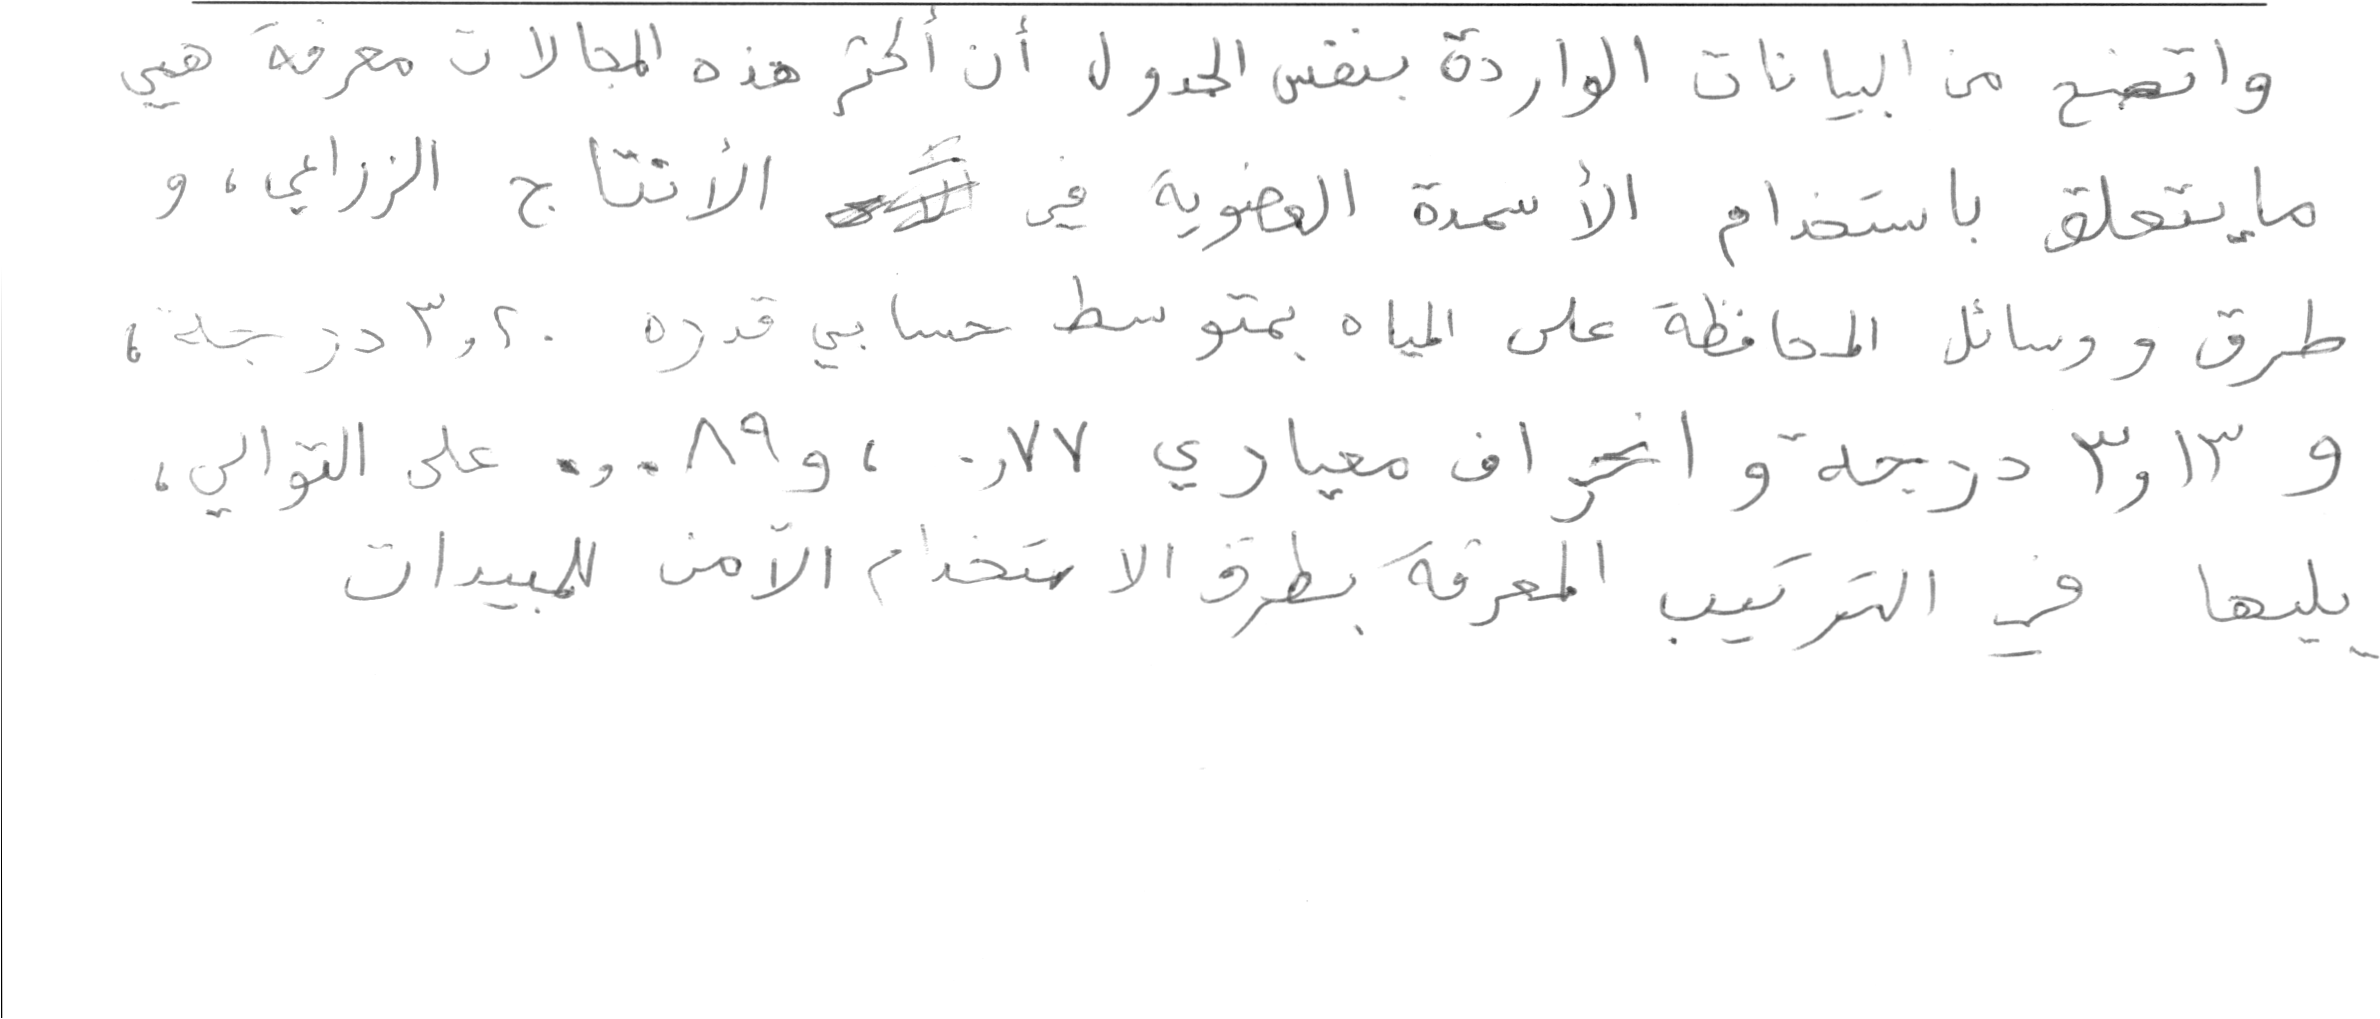 واتضح من البيانات الواردة بنفس الجدول أن أكثر هذه المجالات معرفة هي
ما يتعلق باستخدام الأسمدة العضوية في الأنتاج الزراعي، و
طرق و وسائل المحافظة على المياه بمتوسط حسابي قدره ٣,٢٠ درجة،
و ٣,١٣ درجة و انحراف معياري ٠,٧٧ ، و ٠,٠٨٩ على التوالي،
يليها في الترتيب المعرفة بطرق الاستخدام الآمن للمبيدات